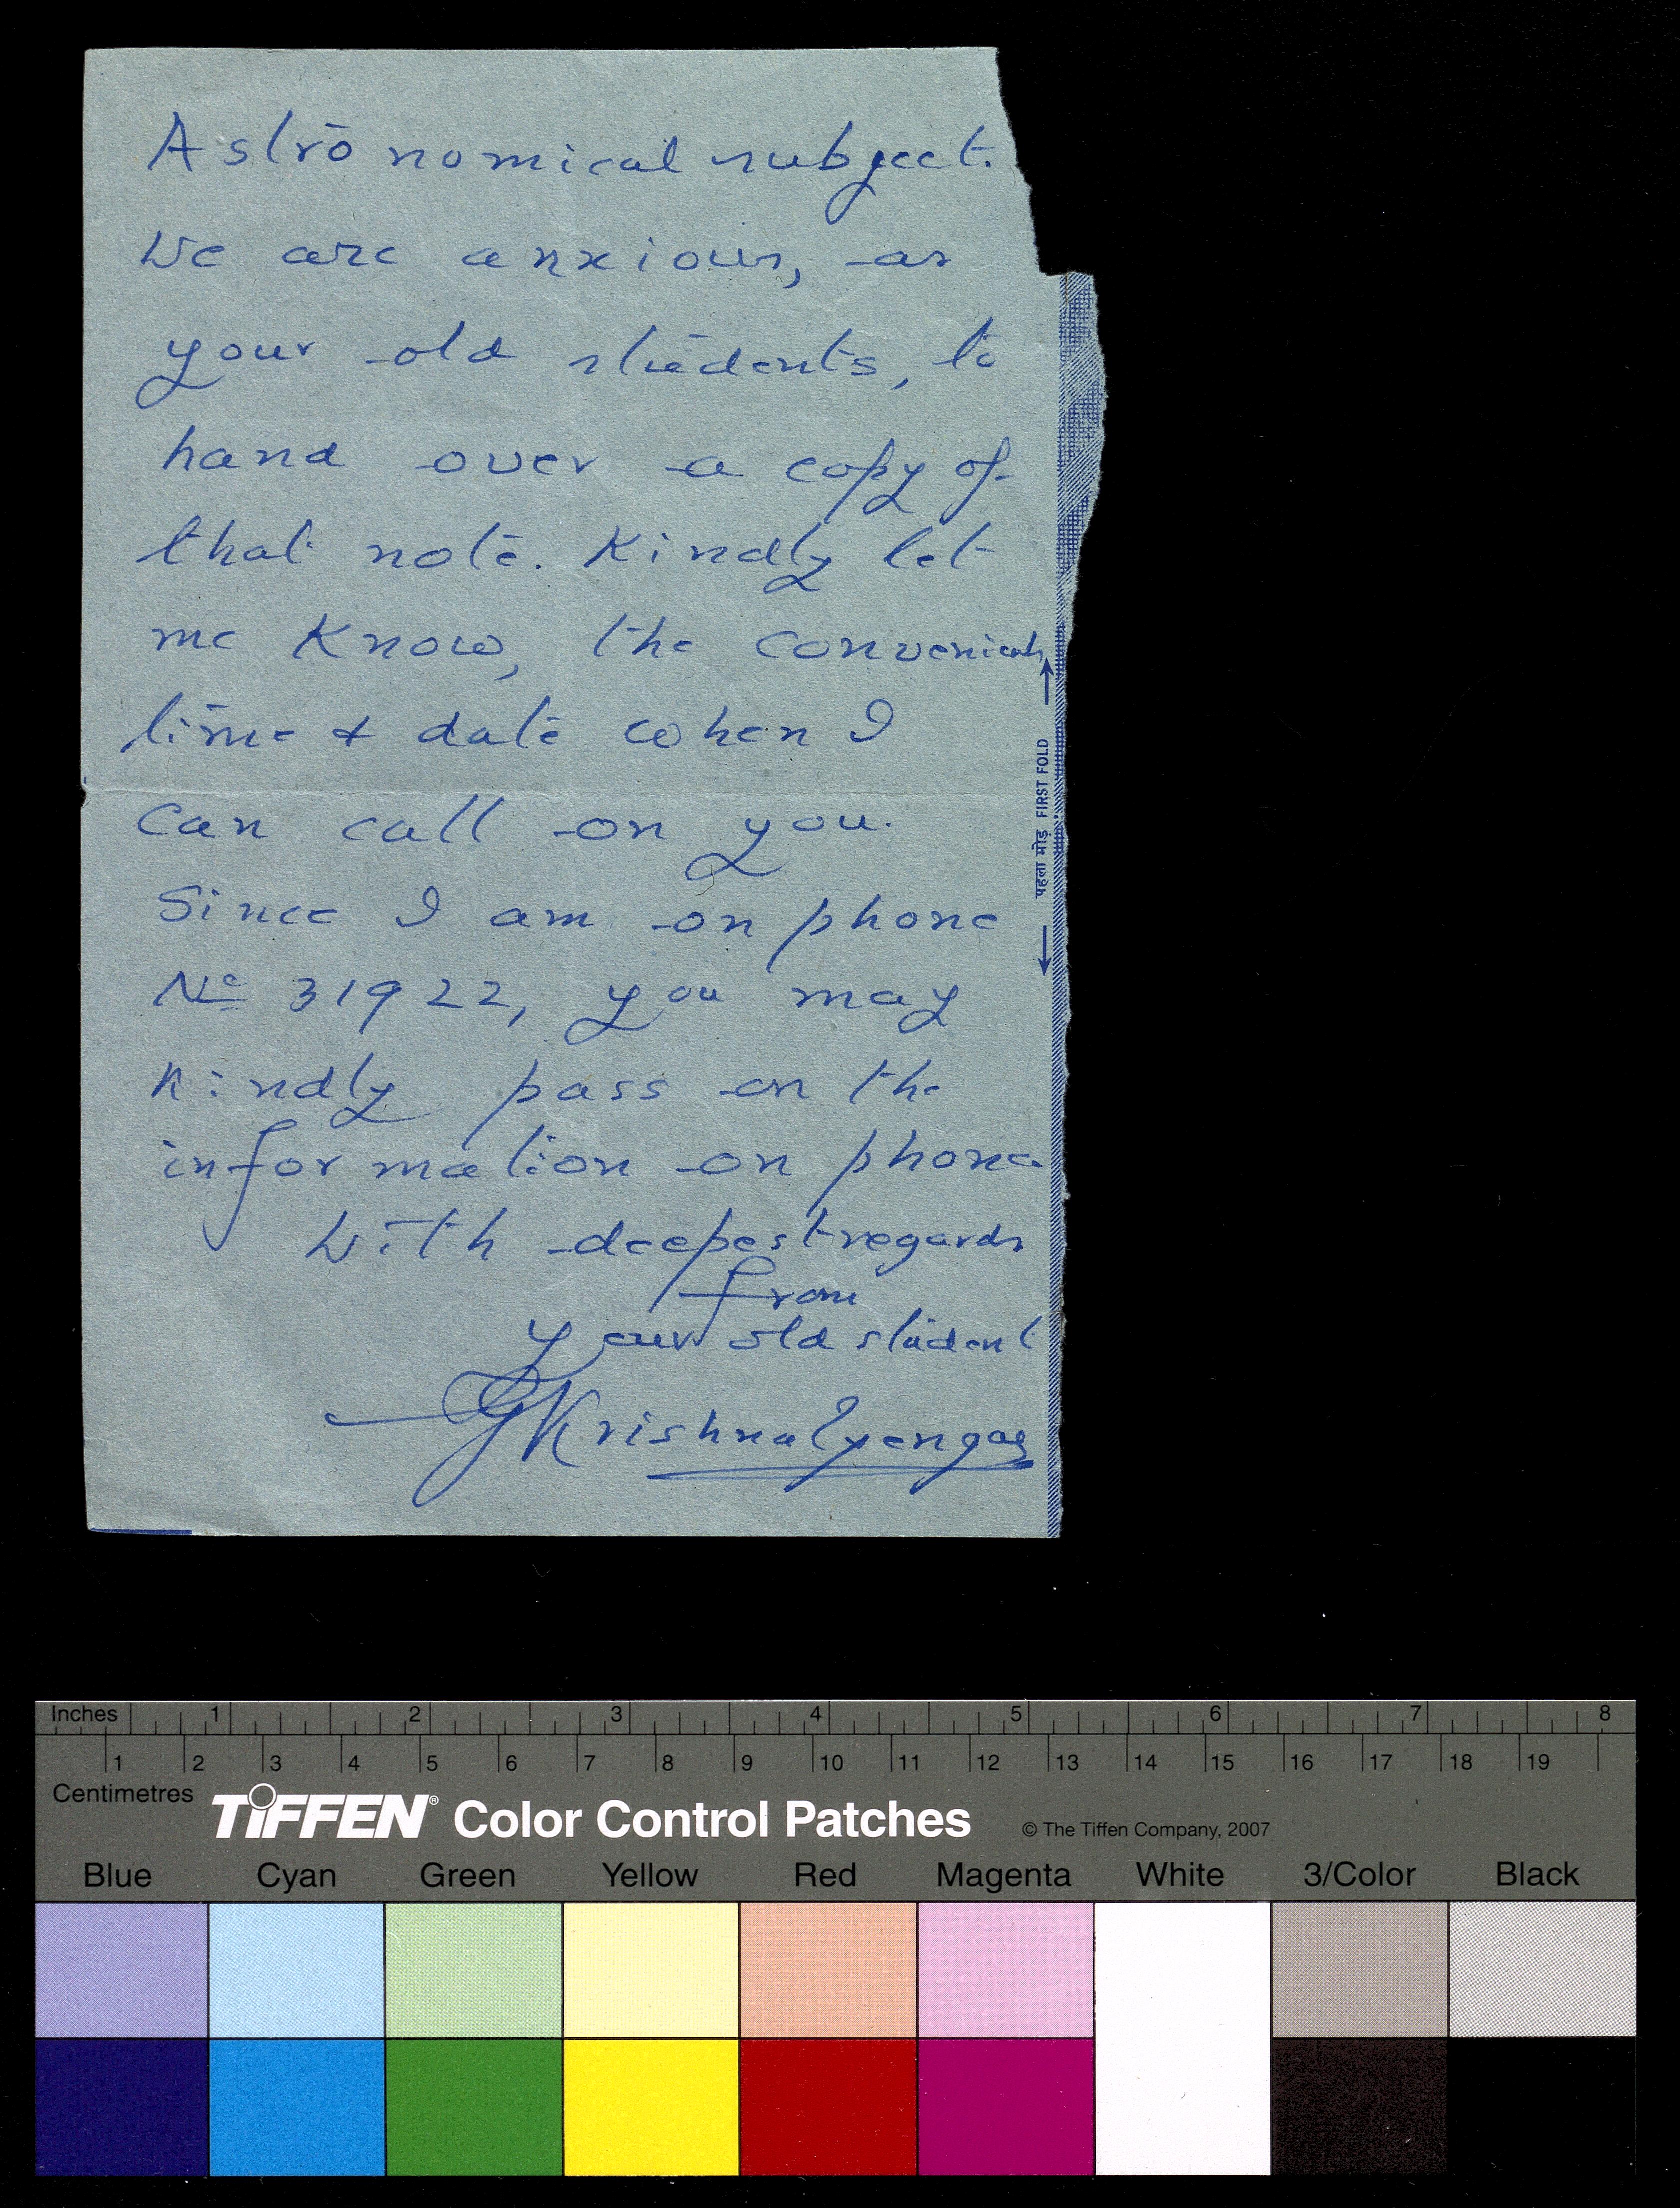 Astronomical subject.
We are anxious, as
your old students, to
hand over a copy of
that note. Kindly let
me know, the convenient
time & date when I
can call on you.
Since I am on phone
No 31922, you may
kindly pass on the
information on phone.
With deepest regards
from
your old student
GKrishnaIyengar
पहला मोड़ FIRST FOLD
Inches 1 2 3 4 5 6 7 8
1 2 3 4 5 6 7 8 9 10 11 12 13 14 15 16 17 18 19
Centimetres
TIFFEN® Color Control Patches © The Tiffen Company, 2007
Blue Cyan Green Yellow Red Magenta White 3/Color Black